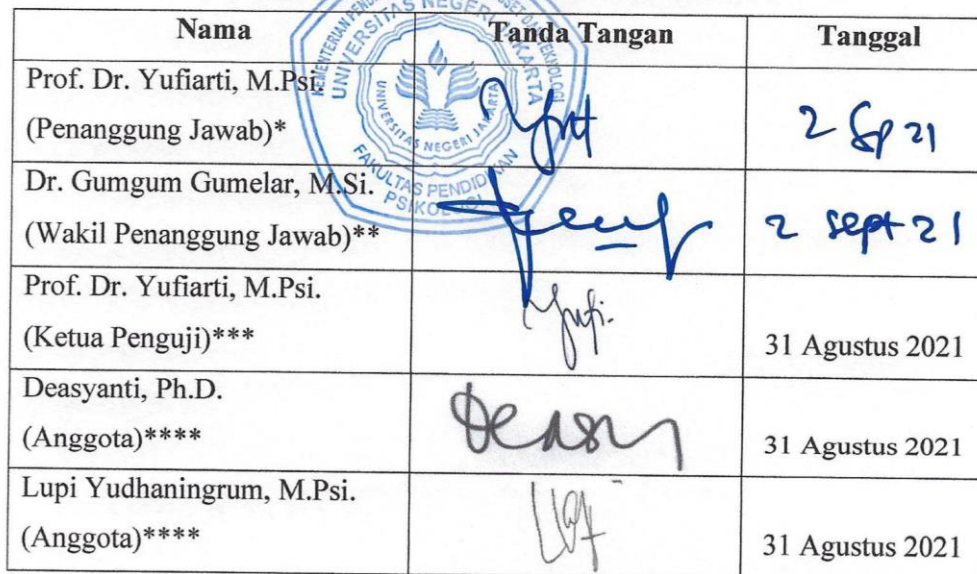 Nama Tanda Tangan Tanggal
Prof. Dr. Yufiarti, M.Psi.
(Penanggung Jawab)* 2 Sp 21
Dr. Gumgum Gumelar, M.Si.
(Wakil Penanggung Jawab)** 2 sept 21
Prof. Dr. Yufiarti, M.Psi.
(Ketua Penguji)*** 31 Agustus 2021
Deasyanti, Ph.D.
(Anggota)**** 31 Agustus 2021
Lupi Yudhaningrum, M.Psi.
(Anggota)**** 31 Agustus 2021
UNIVERSITAS NEGERI JAKARTA
UNIVERSITAS NEGERI JAKARTA
FAKULTAS PENDIDIKAN